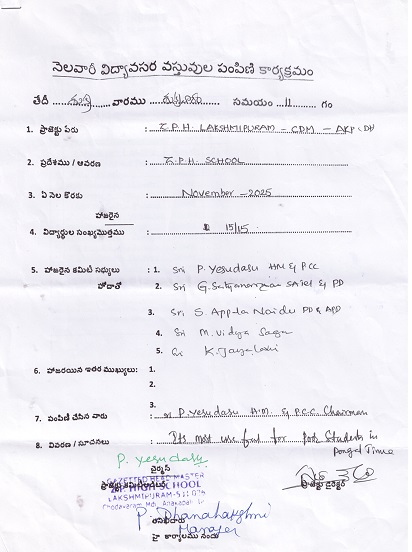 నెలవారీ విద్యావసర వస్తువుల పంపిణి కార్యక్రమం
తేదీ ............ వారము ............ సమయం ..11.. గం
1. ప్రాజెక్టు పేరు : Z.P.H. LAKSHMIPURAM - CDM - AKP
2. ప్రదేశము / ఆవరణ : Z.P.H. SCHOOL
3. ఏ నెల కొరకు : November - 2025
హాజరైన
4. విద్యార్థుల సంఖ్యమొత్తము : 15/15
5. హాజరైన కమిటి సభ్యులు : 1. Sri P. Yesudasu HM & PCC
హోదాతో 2. Sri G. Satyanarayana & PD
3. Sri S. Appla Naidu PD & APD
4. Sri M. Vidya Sagar
5. K. Jayalaxmi
6. హాజరయిన ఇతర ముఖ్యులు: 1.
2.
3.
7. పంపిణీ చేసిన వారు : P. Yesudasu H.M. & P.C.C. Chairman
8. వివరణ / సూచనలు : Its most use ful for poor Students in
Time
P. Yesudasu
చైర్మన్
GAZETTED HEAD MASTER
Z.P. HIGH SCHOOL
LAKSHMIPURAM-531
ప్రాజెక్టు డైరెక్టర్
P. Dhanalakshmi
Manager
పై కార్యాలము నందు